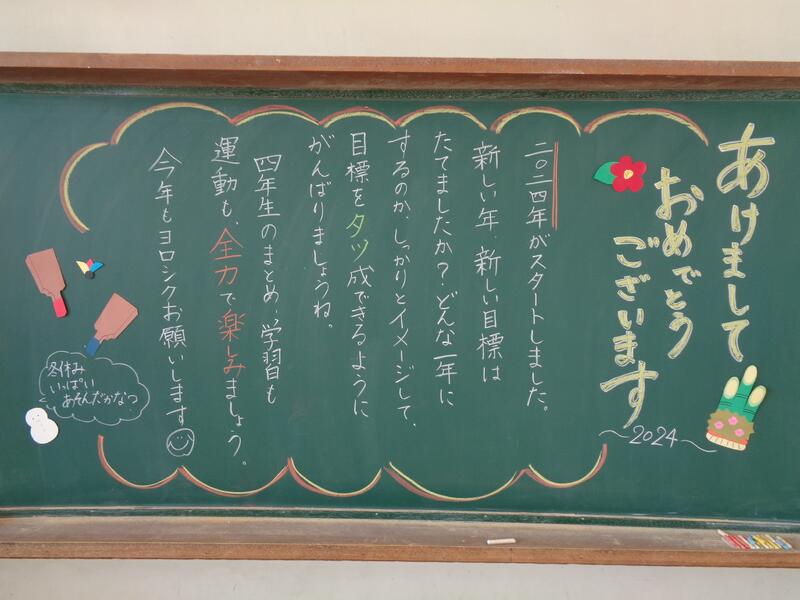 あけまして
おめでとう
ございます
～2024～
二〇二四年がスタートしました。
新しい年、新しい目標は
たてましたか？どんな一年に
するのか、しっかりとイメージして、
目標をタツ成できるように
がんばりましょうね。
四年生のまとめ、学習も
運動も、全力で楽しみましょう。
今年もヨロシクお願いします
冬休み
いっぱい
あそんだかなっ